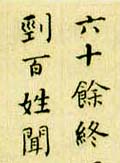 六十餘終
到百姓聞